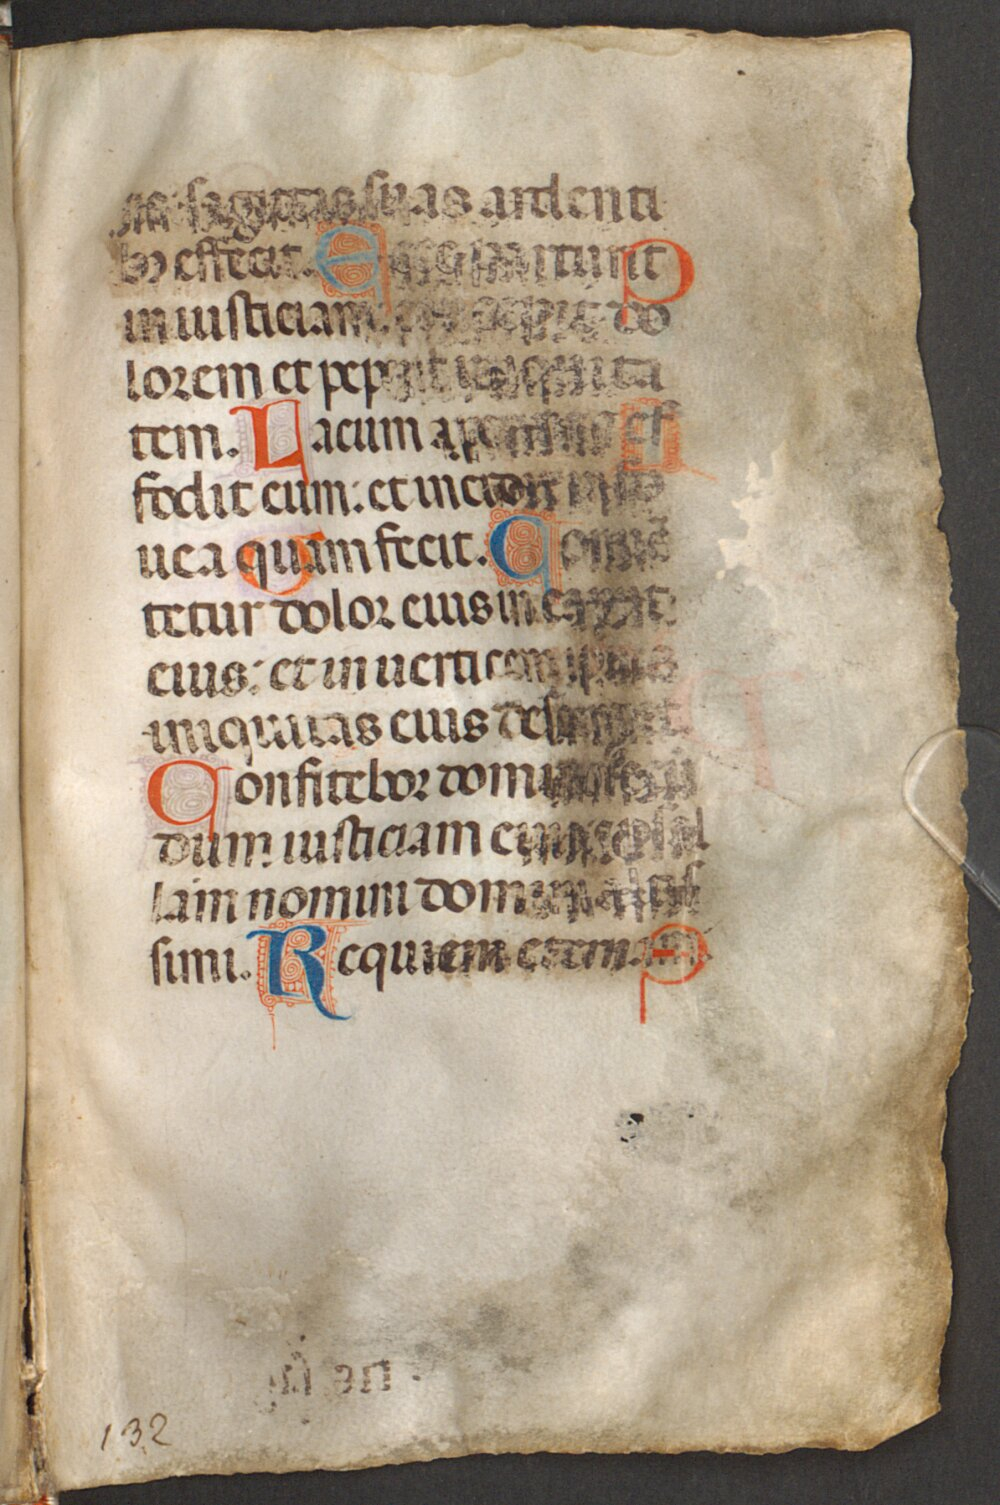 sagittas suas ardenti
bȝ effecit. E parturiit
in iusticiam: do
lorem et peperit iniquita
tem. Lacum aperuit et ef
fodit eum: et incidit in fo
uea quam fecit. Conuer
tetur dolor eius in caput
eius: et in uerticem ipsius
iniquitas eius descendet
Confitebor domino secun
dum iusticiam eius et psal
lam nomini domini altis
simi. Requiem eternam.
132